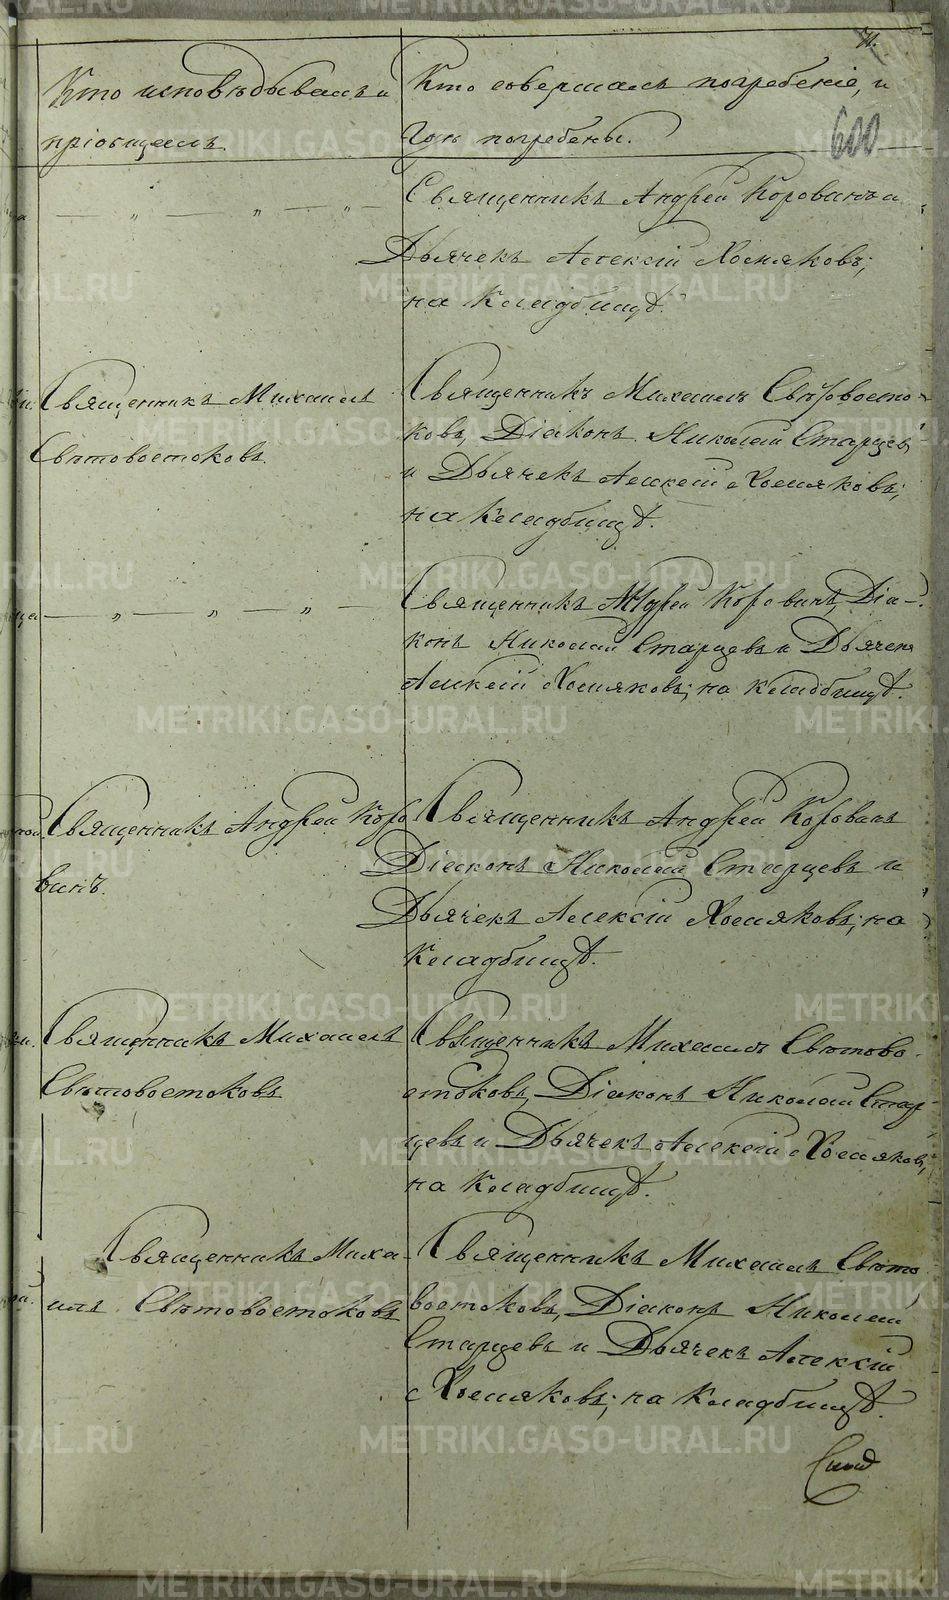 71.
600
Кто исповѣдывалъ и
пріобщалъ.
Кто совершалъ погребеніе, и
гдѣ погребены.
— „ — „ — „ —
Священникъ Андрей Корованъ и
Дьячекъ Алексій Хомяковъ;
на кладбищѣ.
Священникъ Михаилъ
Свѣтовостоковъ.
Священникъ Михаилъ Свѣтовосто-
ковъ, Діаконъ Николай Старцевъ
и Дьячекъ Алексій Хомяковъ;
на кладбищѣ.
— „ — „ — „ —
Священникъ Андрей Корованъ, Діа-
конъ Николай Старцевъ и Дьячекъ
Алексій Хомяковъ; на кладбищѣ.
Священникъ Андрей Коро
ванъ.
Священникъ Андрей Корованъ
Діаконъ Николай Старцевъ и
Дьячекъ Алексій Хомяковъ; на
кладбищѣ.
Священникъ Михаилъ
Свѣтовостоковъ
Священникъ Михаилъ Свѣтово-
стоковъ, Діаконъ Николай Стар-
цевъ и Дьячекъ Алексій Хомяковъ,
на кладбищѣ.
Священникъ Миха-
илъ Свѣтовостоковъ
Священникъ Михаилъ Свѣто
востоковъ, Діаконъ Николай
Старцевъ и Дьячекъ Алексій
Хомяковъ; на кладбищѣ.
METRIKI.GASO-URAL.RU